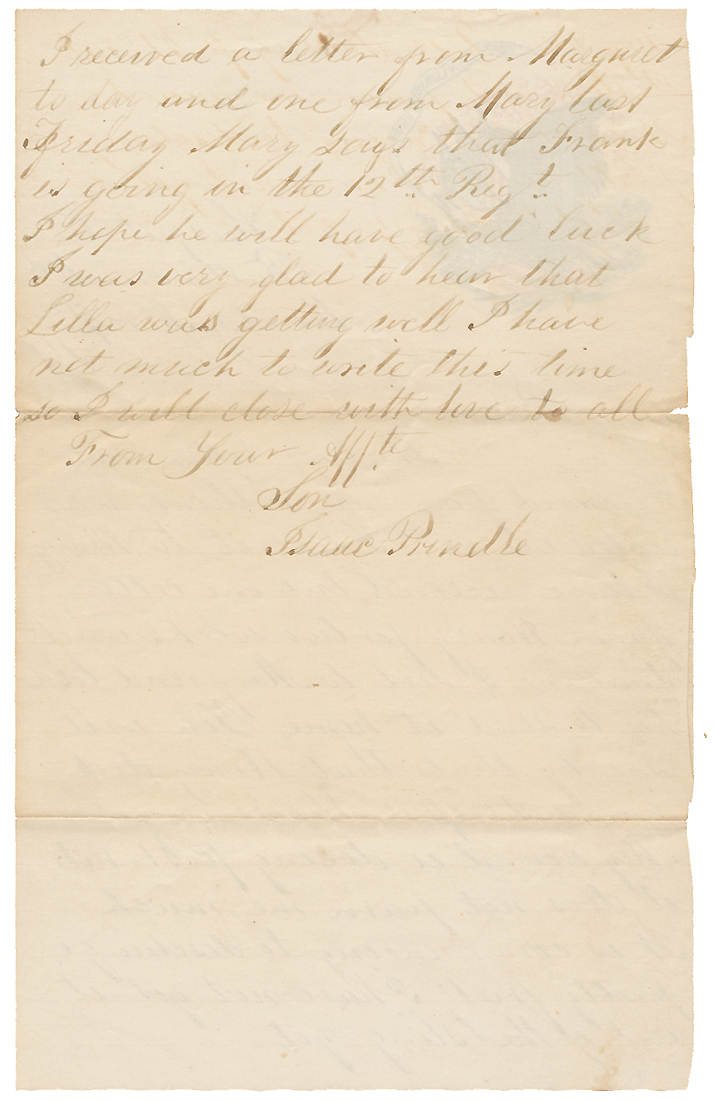 I received a letter from Margaret
to day and one from Mary last
Friday Mary says that Frank
is going in the 12th Regt
I hope he will have good luck
I was very glad to hear that
Lilla was getting well I have
not much to write this time
so I will close with love to all
From Your Affte
Son
Isaac Prindle